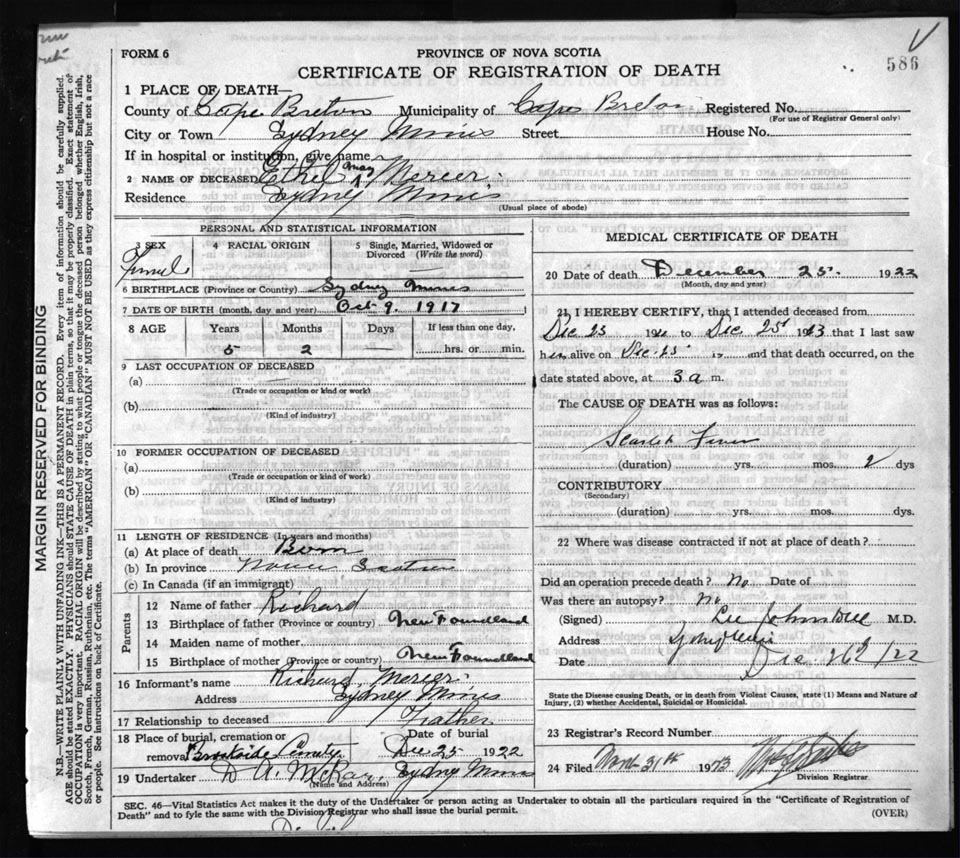 586
FORM 6
PROVINCE OF NOVA SCOTIA
CERTIFICATE OF REGISTRATION OF DEATH
1 PLACE OF DEATH—
County of Cape Breton Municipality of Cape Breton Registered No.
(For use of Registrar General only)
City or Town Sydney Mines Street House No.
If in hospital or institution, give name
2 NAME OF DECEASED Ethel May Mercer
Residence Sydney Mines
(Usual place of abode)
PERSONAL AND STATISTICAL INFORMATION
3 SEX 4 RACIAL ORIGIN 5 Single, Married, Widowed or Divorced (Write the word)
Female
6 BIRTHPLACE (Province or Country) Sydney Mines
7 DATE OF BIRTH (month, day, and year) Oct 9. 1917
8 AGE Years Months Days If less than one day,
5 2 — hrs. or min.
9 LAST OCCUPATION OF DECEASED
(a)
(Trade or occupation or kind or work)
(b)
(Kind of industry)
10 FORMER OCCUPATION OF DECEASED
(a)
(Trade or occupation or kind of work)
(b)
(Kind of industry)
11 LENGTH OF RESIDENCE (In years and months)
(a) At place of death Born
(b) In province Nova Scotia
(c) In Canada (if an immigrant)
Parents
12 Name of father Richard
13 Birthplace of father (Province or country) New Foundland
14 Maiden name of mother
15 Birthplace of mother (Province or country) New Foundland
16 Informant's name Richard Mercer
Address Sydney Mines
17 Relationship to deceased Father
18 Place of burial, cremation or removal Brookside Date of burial Dec 25 1922
19 Undertaker D A. McRae, Sydney Mines
(Name and Address)
MEDICAL CERTIFICATE OF DEATH
20 Date of death December 25. 1922
(Month, day and year)
21 I HEREBY CERTIFY, that I attended deceased from
Dec 23 19 to Dec. 25 19 that I last saw
her alive on Dec. 25 19 and that death occurred, on the
date stated above, at 3 a m.
The CAUSE OF DEATH was as follows:
Scarlet Fever
(duration) yrs. mos. 2 dys
CONTRIBUTORY
(Secondary)
(duration) yrs. mos. dys.
22 Where was disease contracted if not at place of death?
Did an operation precede death? No Date of
Was there an autopsy? No
(Signed) M.D.
Address
Date Dec. 26 /22
State the Disease causing Death, or in death from Violent Causes, state (1) Means and Nature of
Injury, (2) whether Accidental, Suicidal or Homicidal.
23 Registrar's Record Number
24 Filed 31st 19
Division Registrar.
SEC. 46—Vital Statistics Act makes it the duty of the Undertaker or person acting as Undertaker to obtain all the particulars required in the "Certificate of Registration of
Death" and to fyle the same with the Division Registrar who shall issue the burial permit. (OVER)
MARGIN RESERVED FOR BINDING
N.B.—WRITE PLAINLY WITH UNFADING INK—THIS IS A PERMANENT RECORD. Every item of information should be carefully supplied.
AGE should be stated EXACTLY. PHYSICIANS should STATE CAUSE OF DEATH in plain terms, so that it may be properly classified. Exact statement of
OCCUPATION is very important. RACIAL ORIGIN will be described by stating to what people or tongue the deceased person belonged whether English, Irish,
Scotch, French, German, Russian, Ruthenian, etc. The terms "AMERICAN" OR "CANADIAN" MUST NOT BE USED as they express citizenship but not a race
or people. See instructions on back of Certificate.